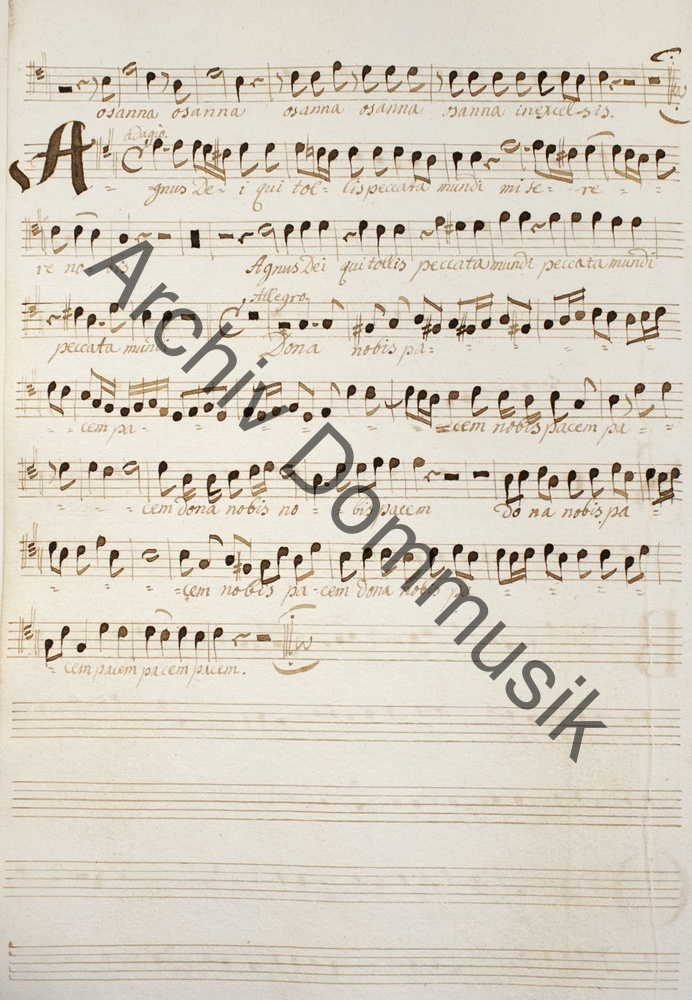 osanna osanna osanna osanna osanna in excel-sis.
adagio.
Agnus De-i qui tol-lis peccata mundi mi se-re-
re no-bis Agnus Dei qui tollis peccata mundi peccata mundi
Allegro.
peccata mundi Dona nobis pa-
cem pa- cem nobis pacem pa-
cem dona nobis no-bis pacem do na nobis pa
cem nobis pa-cem dona nobis pa
cem pacem pacem pacem.
Archiv Dommusik